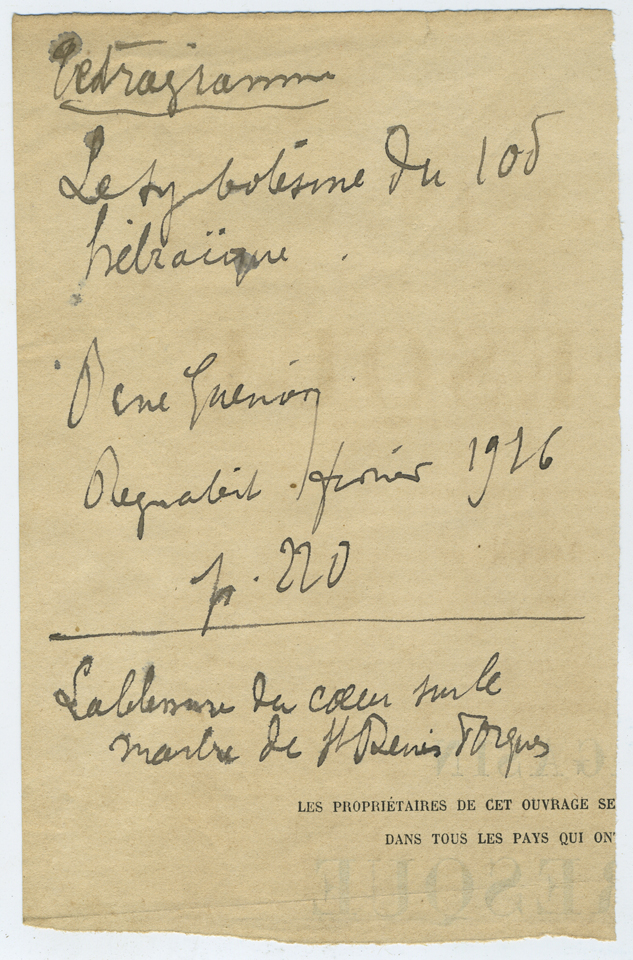 Tetragramme
Le symbolisme du Iod
hébraïque.
Rene Guenon
Regnabit février 1926
p. 220
La blessure du cœur sur le
marbre de St Denis d'Orques
LES PROPRIÉTAIRES DE CET OUVRAGE SE
DANS TOUS LES PAYS QUI ON